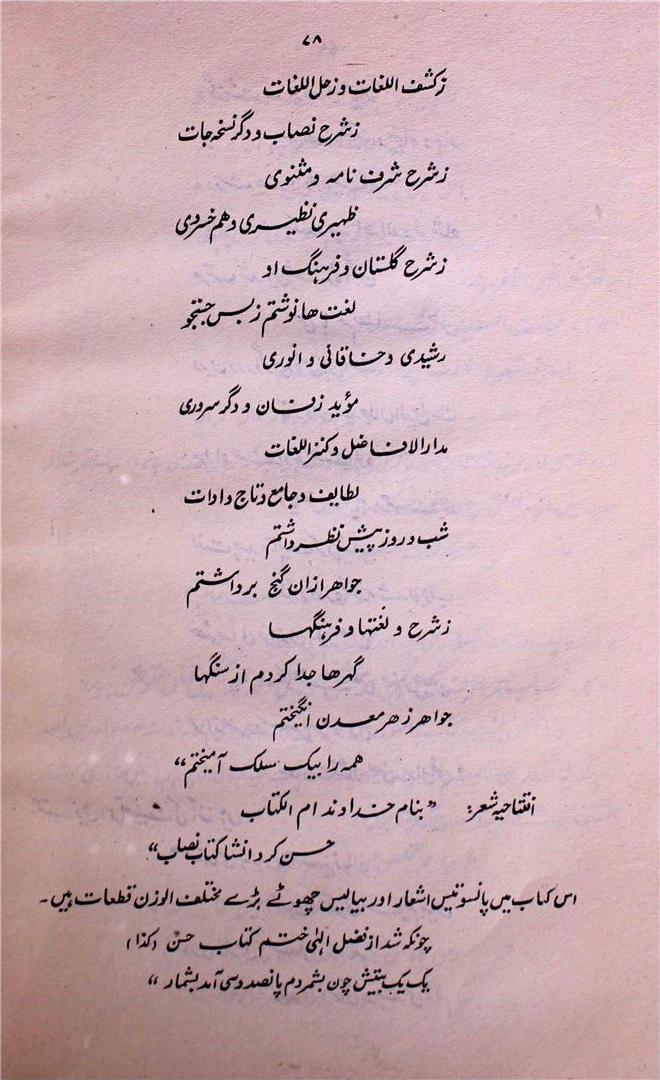 ۷۸
زکشف اللغات و زحل اللغات
زشرح نصاب و دگر نسخہ جات
زشرح شرف نامہ و مثنوی
ظہیری نظیری و هم خسروی
زشرح گلستان و فرہنگ او
لغت ها نوشتم زبس جستجو
رشیدی و خاقانی و انوری
مؤید زفان و دگر سروری
مدار الافاضل و کنز اللغات
لطایف و جامع و تاج و ادات
شب و روز پیش نظر داشتم
جواهر ازان گنج برداشتم
زشرح و لغتها و فرہنگها
گہرها جدا کردم از سنگها
جواهر زهر معدن انگیختم
همه را بیک سلک آمیختم“
افتتاحیہ شعر: ”بنام خداوند ام الکتاب
حسن کرد انشا کتاب نصاب“
اس کتاب میں پانسوتیس اشعار اور بیالیس چھوٹے بڑے مختلف الوزن قطعات ہیں۔
چونکہ شد از فضل الہٰی ختم کتاب حسن (کذا)
یک یک بیتش چون بشمردم پانصد و سی آمد بشمار“